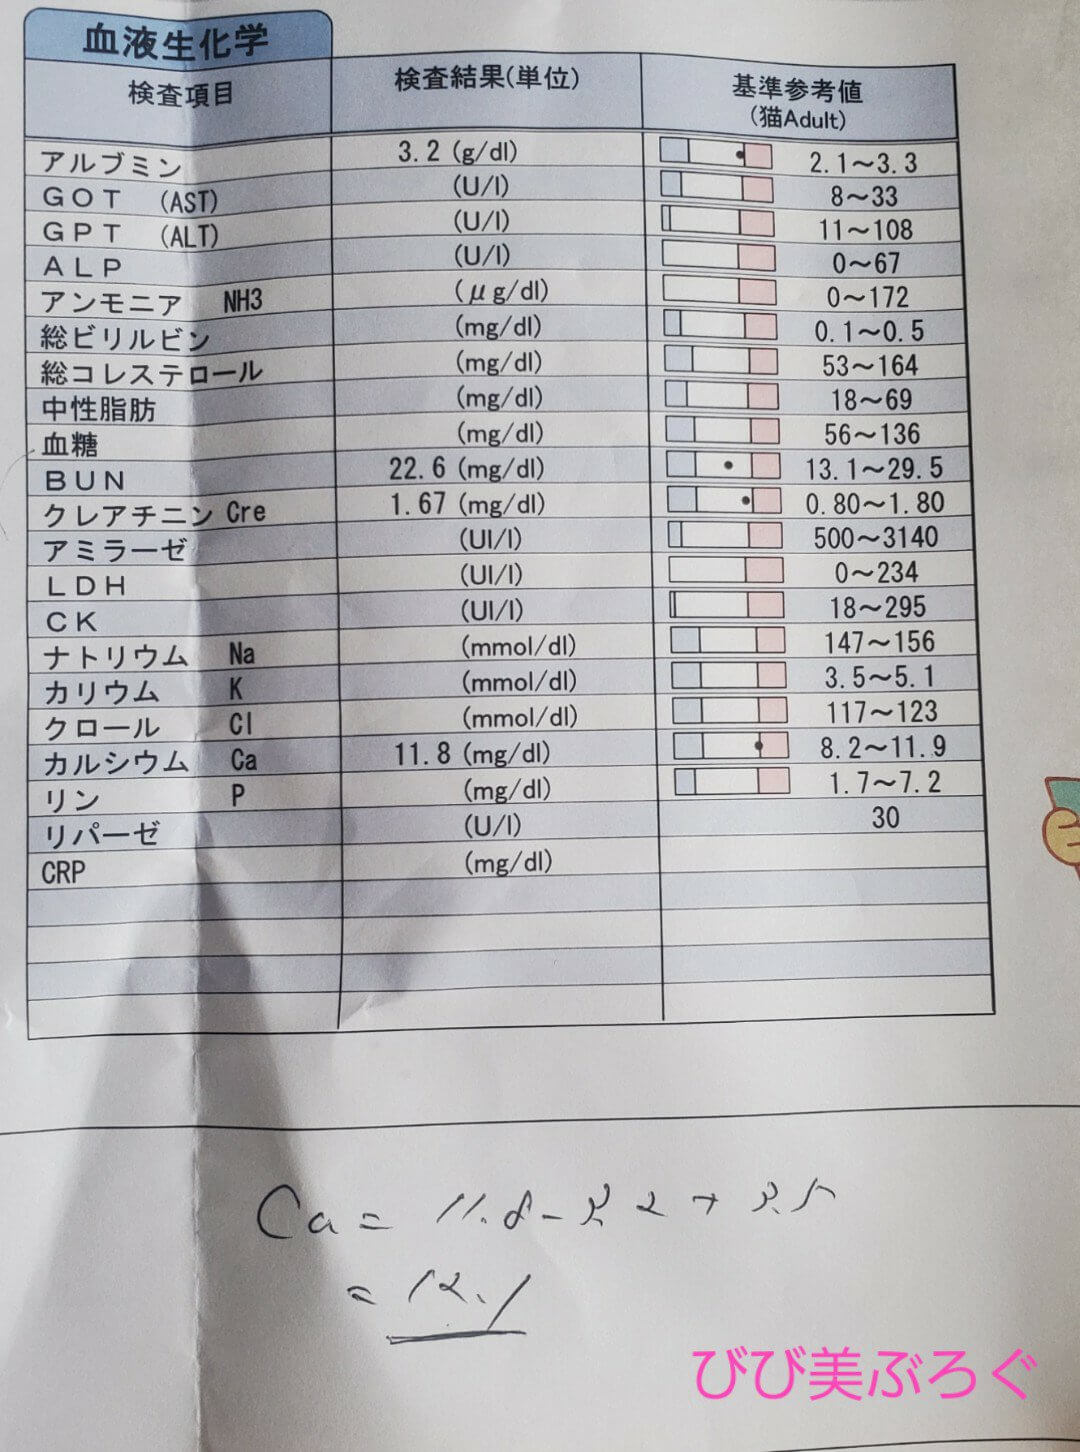 血液生化学
検査項目 検査結果(単位) 基準参考値
(猫Adult)
アルブミン 3.2 (g/dl) 2.1～3.3
GOT (AST) (U/l) 8～33
GPT (ALT) (U/l) 11～108
ALP (U/l) 0～67
アンモニア NH3 (μg/dl) 0～172
総ビリルビン (mg/dl) 0.1～0.5
総コレステロール (mg/dl) 53～164
中性脂肪 (mg/dl) 18～69
血糖 (mg/dl) 56～136
BUN 22.6 (mg/dl) 13.1～29.5
クレアチニン Cre 1.67 (mg/dl) 0.80～1.80
アミラーゼ (UI/l) 500～3140
LDH (UI/l) 0～234
CK (UI/l) 18～295
ナトリウム Na (mmol/dl) 147～156
カリウム K (mmol/dl) 3.5～5.1
クロール Cl (mmol/dl) 117～123
カルシウム Ca 11.8 (mg/dl) 8.2～11.9
リン P (mg/dl) 1.7～7.2
リパーゼ (U/l) 30
CRP (mg/dl)
Ca = 11.8 - 3.2 + 3.5
= 12.1
びび美ぶろぐ